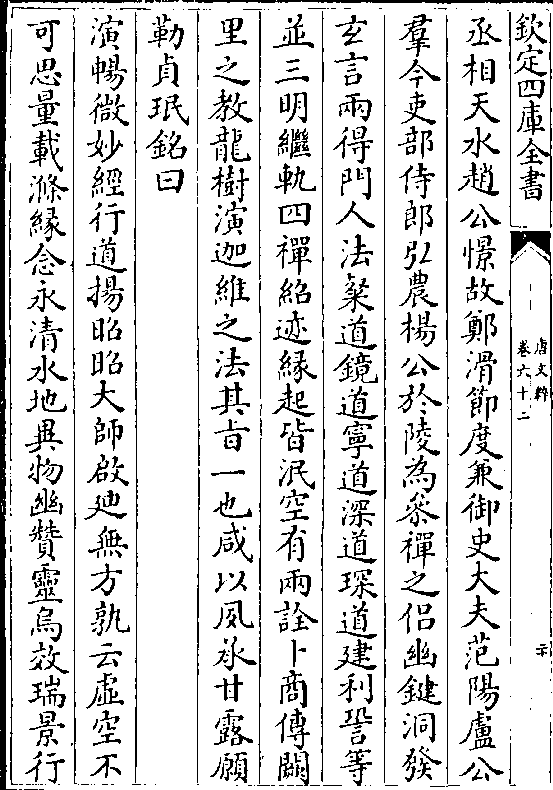 欽定四庫全書
唐文粹
卷六十二
丞相天水趙公憬故鄭滑節度兼御史大夫范陽盧公
羣今吏部侍郎弘農楊公於陵為叅禪之侣幽鍵洞發
玄言兩得門人法粲道鏡道寧道深道琛道建利誓等
並三明繼軌四禪紹迹縁起皆泯空有兩詮卜商傳闕
里之教龍樹演迦維之法其旨一也咸以夙承甘露願
勒貞珉銘曰
演暢微妙經行道揚昭昭大師啟廸無方孰云虛空不
可思量載滌縁念永清水地異物幽贊靈烏效瑞景行